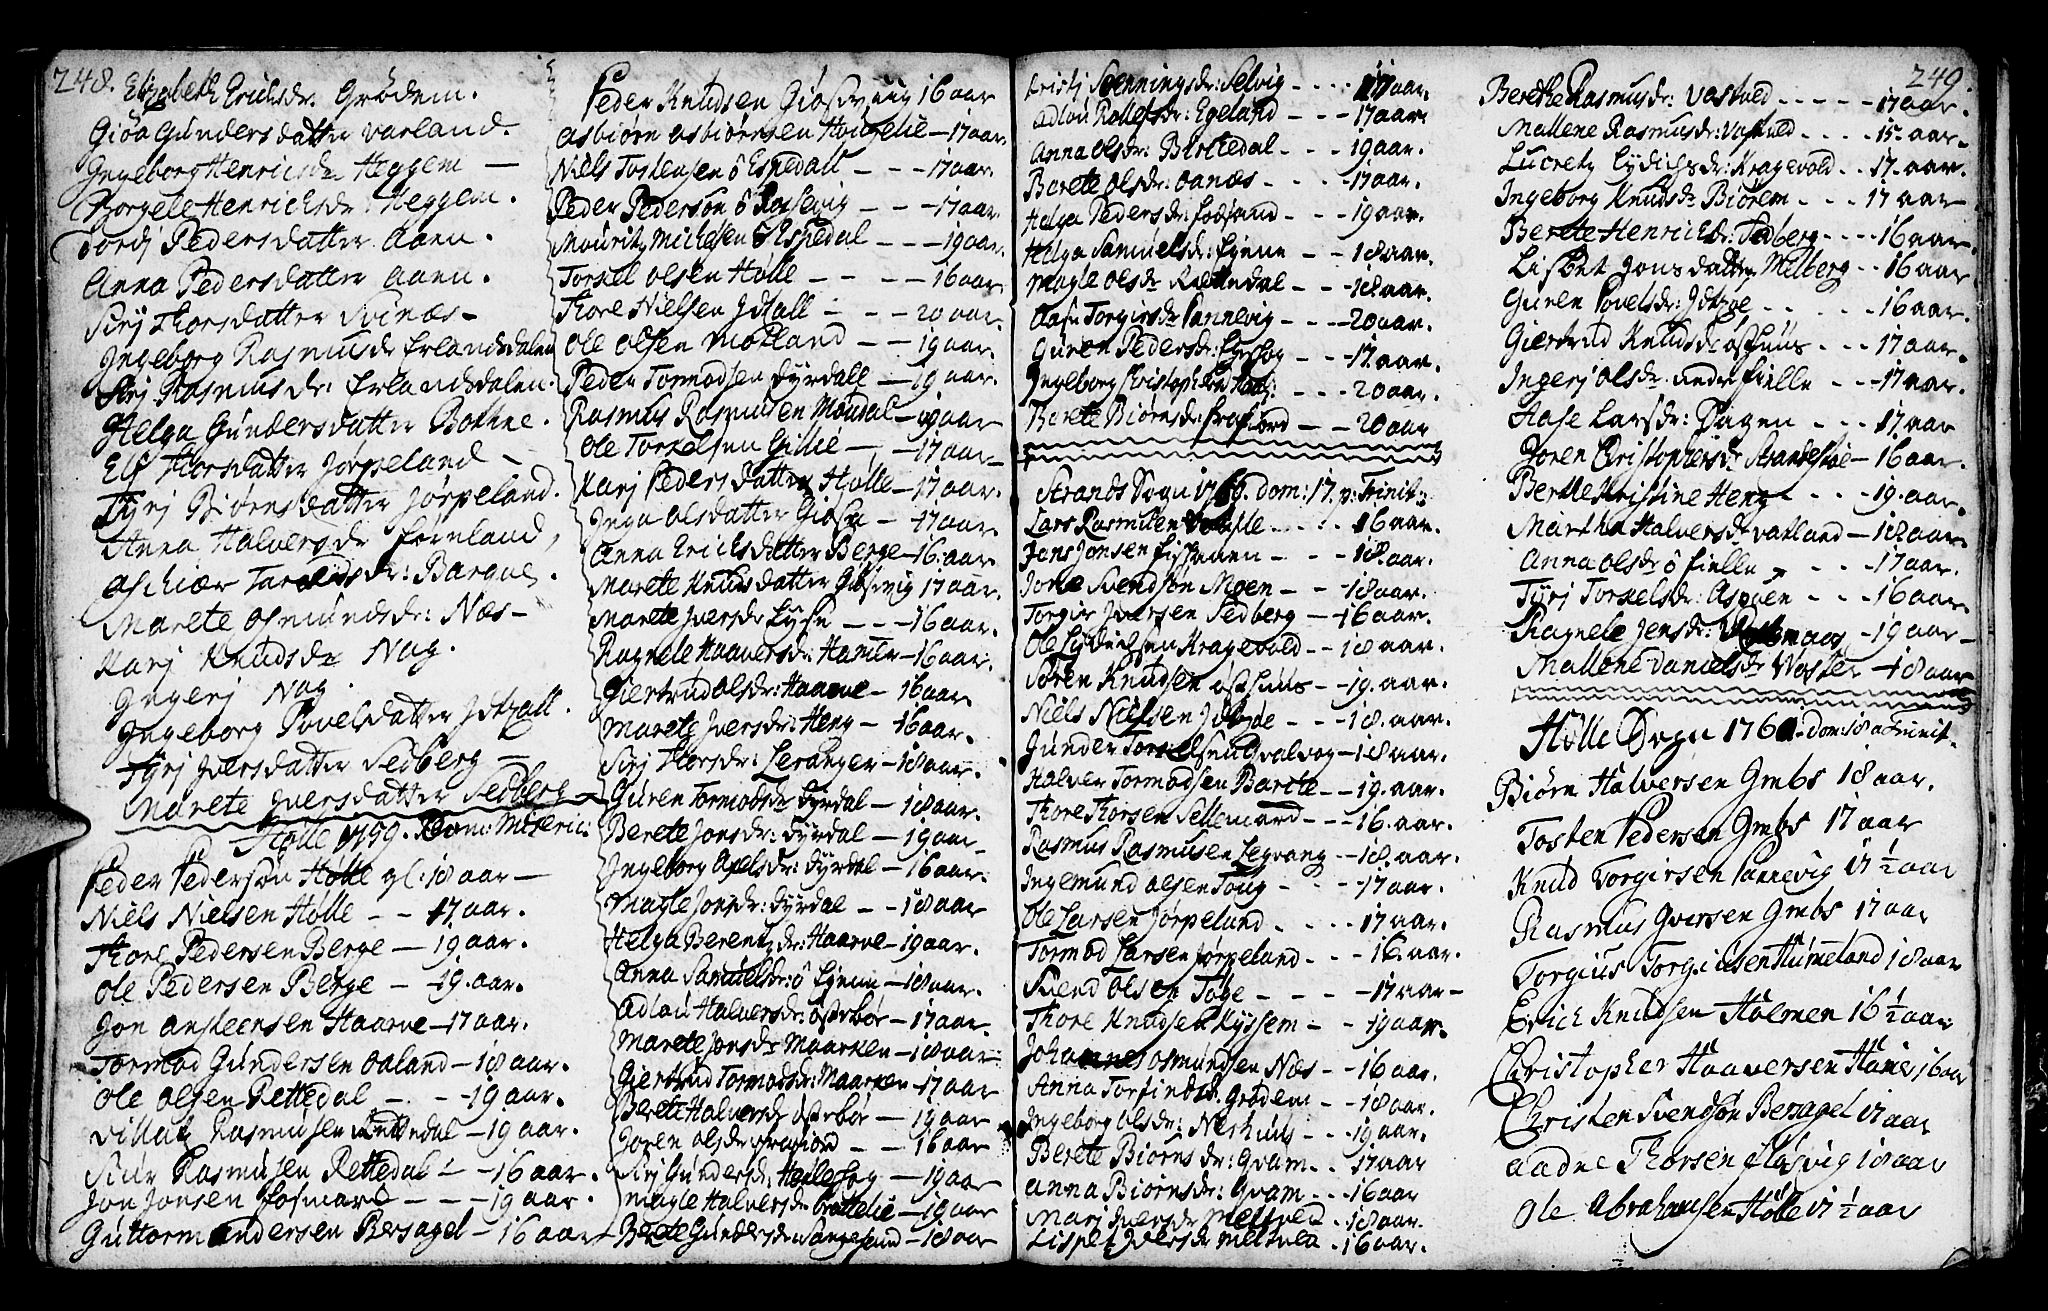 248.
Elizabeth Ericksdr. Grødem.
Giøa Gundersdatter Varland.
Ingeborg Henricsdr Heggem —
Borgele Henrichsdr. Heggem.
Tordj Pedersdatter Aaen.
Anna Pedersdatter Aaen.
Sirj Thorsdatter Svinæs —
Ingeborg Rasmusdr Erlandsdalen
Sirj Rasmusdr: Erlandsdalen.
Helga Gundersdatter Botne.
Elj Thorsdatter Jørpeland —
Tyrj Biørnsdatter Jørpeland.
Anna Halversdr Føreland,
Aschier dr: Barque.
Marete Osmundsdr: Næs —
Karj Knudsdr Nag.
Ingerj Nag.
Ingeborg Povelsdatter Idtzall.
Tyrj Iversdatter Sedberg —
Marete Iversdatter Sedberg —
Hølle 1759. Dom: Miseric:
Peder Pedersøn Hølle gl: 18 aar —
Niels Nielsen Hølle — — 17 aar.
Thore Pedersen Berge — 19 aar.
Ole Pedersen Berge — 19. aar.
Jon Ansteensen Haarve — 17 aar.
Tormod Gundersen Oaland — 18 aar.
Ole Olsen Rettedal — — 19 aar.
Villatz Rasmusen Rettedal — 19 aar.
Siur Rasmusen Rettedal — 16 aar.
Jon Jonsen Fosmark — — — 19 aar.
Guttorm Andersen Bersagel — 16 aar
Peder Knudsen Giøsvig 16 aar
Asbiørn Asbiørnsen Hougelie — 17 aar.
Niels Tostensen ô Espedall — — — 17 aar.
Peder Pedersøn ô — — 17 aar.
Mouritz Michelsen ô Espedal — — — 19 aar.
Torkel Olsen Hølle — — — — 16 aar.
Thore Nielsen Idtzall — — — 20 aar.
Ole Olsen Mosland — — 19 aar.
Peder Tormodsen Dyrdall — 19 aar.
Rasmus Rasmusen Møndal — 19 aar
Ole Torkelsen Gillie —, — 17 aar —
Karj Pedersdatter Hølle — 17 aar.
Inga Olsdatter Giøsn — 17 aar.
Anna Ericksdatter Berge — 16. aar.
Marete Knudsdatter Giøsvig 17 aar.
Marete Iversdr Lyse — — — 16 aar.
Ragnele Haaversdr. Hamer — 16 aar.
Giertrud Olsdr. Haarve — 16 aar
Marete Iversdr: Heng — 16 aar.
Sirj Thorsdr: Leranger — 18 aar.
Guren Tormodsdr Dyrdal — 18 aar.
Berete Jonsdr: Dyrdal — 19 aar —
Ingeborg Axelsdr: Dyrdal — 16 aar.
Magle Jonsdr: Dyrdal — — 18 aar
Helga Berentzdr: Haarve — 19 aar.
Anna Samuelsdr: ô — 18 aar.
Adlau Halversdr: Østebør — 17 aar.
Marete Jonsdr Maarken — 18 aar
Giertrud Tormodsdr: Maarken — 17 aar
Berete Halversdr Østebør — 19 aar
Joren Olsdr Frafiord — — 16 aar
Sirj Gundersdr. Helleslog — 19 aar
Magle Halversdr Brattelie — 19 aar
Berete Gundersdr Songesand — 18 aar
249.
Kristj Svenningsdr: Selvig - - - - 17 aar.
Adlau Rollefsdr: Egeland - - - 17 aar.
Anna Olsdr: Birckedal - - - 19 aar.
Berete Olsdr: Oanæs - - - - 17 aar.
Helga Pedersdr: Fossand - - - 19 aar.
Helga Samuelsdr: - - 18 aar.
Magle Olsdr - - 18 aar.
Aase Torgiersdr Pannevig - - - 20 aar.
Guren Pedersdr: - - - 17. aar.
Ingeborg Christophersdr - - - 20 aar.
Berete Biørnsdr: Frafiord - - 20 aar
Strands Sogn 1759. dom: 17. p: Trinit:
Lars Rasmusen - - - 16 aar.
Jens Jonsen - - - 18. aar.
Jone Svendsøn Moen - - 18 aar.
Torgier Iversen Sedberg — 16 aar.
Ole Lydichsen Kragevold - - 18 aar.
Søren Knudsen Østhuus - - 19. aar.
Niels Nielsen - - - 18. aar.
Gunder Torkelsen Qvalvog — 18 aar.
Halver Tormodsen Barcke - - 19. aar.
Thore Thorsen Sellemard - - - 16. aar.
Rasmus Rasmusen Legvang - - 18. aar.
Ingemund Olsen Toug - - - 17 aar.
Ole Larsen Jørpeland - - - - 17 aar.
Tormod Larsen Jørpeland - - - 16. aar.
Svend Olsen Toge - - - - 17 aar —
Thore Knudsen Kyssem - - 19 aar.
Johannes Osmundsen Næs - - 16 aar.
Anna Torfindsdr. Grødem - - 18 aar.
Ingeborg Olsdr: Neshuus - - 19 aar.
Berete Biørnsdr: Qvam - - 17 aar
Anna Biørnsdr: Qvam - - 16 aar
Marj Iversdr Meltved - 18 aar.
Lispet Iversdr Meltved - 16 aar.
Berethe Rasmusdr: Vastved - - - - - 17 aar.
Mallene Rasmusdr: Vastved - - - - 15. aar.
Lucretz Lydichsdr: Kragevold - - 17. aar.
Ingeborg Knudsdr Biørem - - - 17 aar
Berete Henrichsdr: Sedberg - - - - 16 aar.
Lisbet Jonsdatter Melberg - - 16 aar
Guren Povelsdr: - - - - - 16 aar.
Giertrud Knudsdr Østhuus - - - 17 aar.
Ingerj Olsdr. nedre Fielle - - 17 aar.
Aase Larsdr: Dagen - - - 17 aar
Joren Christophersdr. — 16 aar.
Berthe Kristine Heng - - - 19. aar.
Martha Halversdr Varland — 18 aar.
Anna Olsdr ô Fielle - - - - 17 aar.
Tyrj Torkelsdr: Aspøen - - - 16 aar.
Ragnele Jensdr: - 19 aar —
Mallene Danielsdr - 18 aar
Hølle Sogn 1760. dom: 18 a Trinit.
Biørn Halversen Ombs 18 aar.
Tosten Pedersen Ombs 17 aar
Knud Torgirsen Pannevig 17 ½ aar
Rasmus Iversen Ombs 17 aar
Torgius Torgiusen Hummeland 18 aar
Erick Knudsen Holmen 16 ½ aar
Christopher Haaversen Hamer 16 aar
Christen Svendsøn Bersagel 17 aar
Aadne Thorsen Giøsvig 18 aar
Ole Abrahamsen Hølle 17 ½ aar